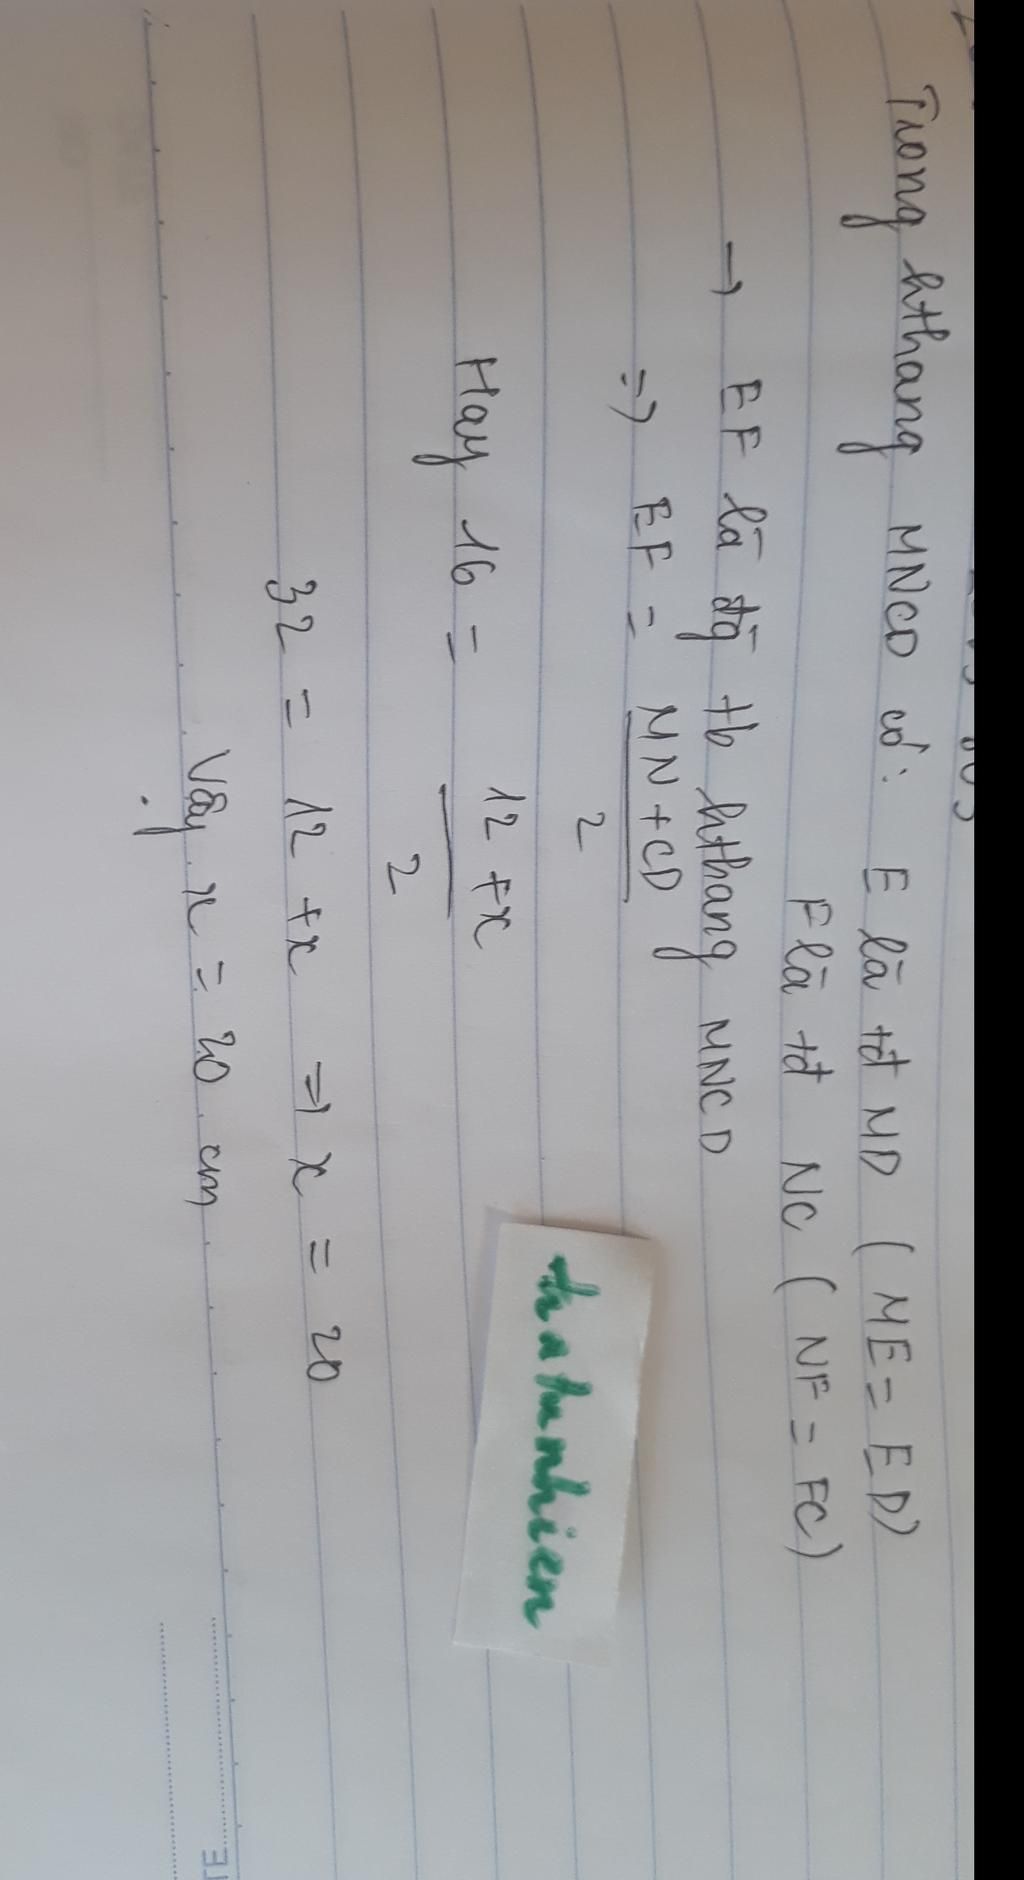 Trong hthang MNCD có: E là tđ MD ( ME = ED)
F là tđ NC ( NF = FC)
→ EF là đg tb hthang MNCD
=> EF = MN + CD
2
Hay 16 = 12 + x
2
thatunhien
32 = 12 + x => x = 20
Vậy x = 20 cm